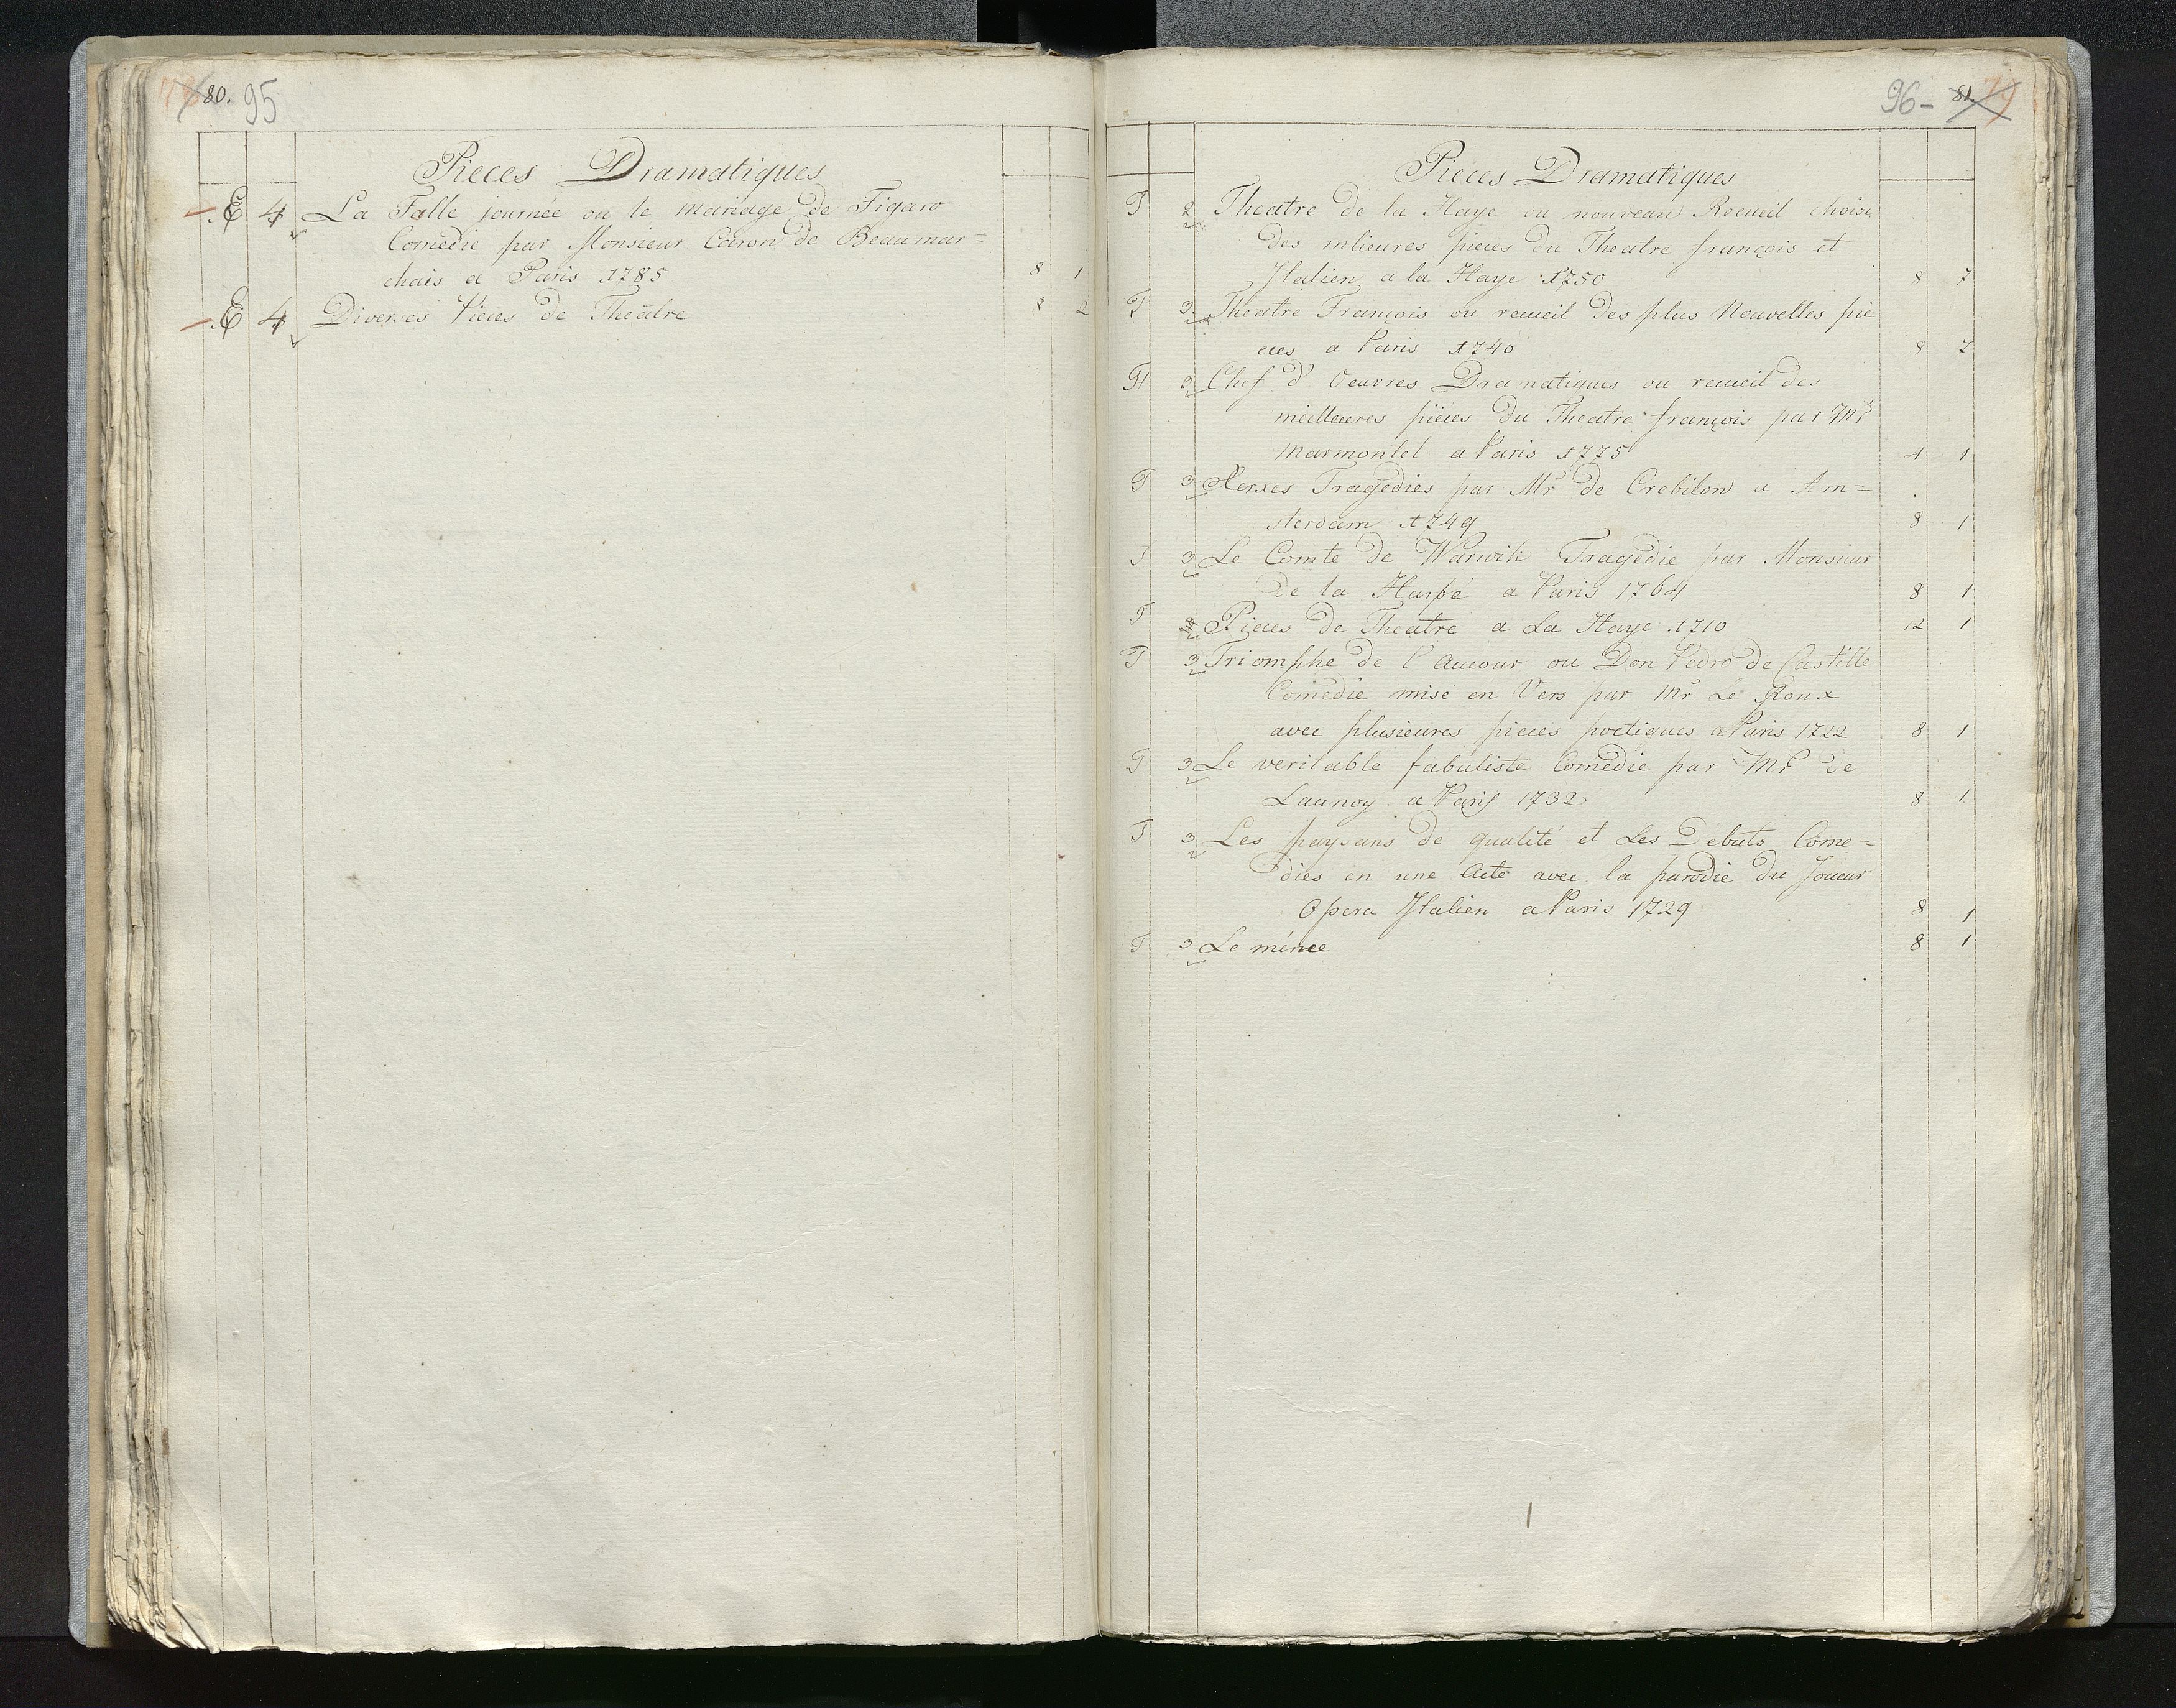 80. 95
Pieces Dramatiques
E 4 La Folle journée ou le Mariage de Figaro
Comedie par Monsieur Caron de Beaumar=
chais a Paris 1785 8 1
E 4 Diverses Pieces de Theatre 8 2
96- 81 79
Pieces Dramatiques
T 2 Theatre de la Haye ou nouveau Recueil choisi
des mlieures pieces du Theatre françois et
Italien a la Haye 1750 8 7
T 3 Theatre François ou recueil des plus Nouvelles pie
ces a Paris 1740 8 7
H 3 Chef d'Oeuvres Dramatiques ou recueil des
meilleures pieces du Theatre françois par Mr
Marmontel a Paris 1775 4 1
T 3 Xerxes Tragedies par Mr de Crebilon a Am=
sterdam 1749 8 1
T 3 Le Comte de Warwik Tragedie par Monsieur
de la Harpe a Paris 1764 8 1
T Pieces de Theatre a La Haye 1710 12 1
T 3 Triomphe de l'amour ou Don Pedro de Castille
Comedie mise en Vers par Mr Le Roux
avec plusieures pieces poetiques a Paris 1722 8 1
T 3 Le veritable fabuliste Comedie par Mr de
Launoy a Paris 1732 8 1
T 3 Les paysans de qualité et Les Debuts Come=
dies en une Acte avec la parodie du Joueur
Opera Italien a Paris 1729 8 1
T 3 Le même 8 1